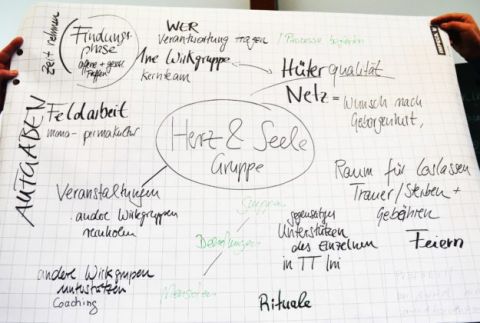 Zeit nehmen
Findungs-
phase
offene + gesch.
Treffen
WER
Verantwortung tragen / Prozesse begleiten
Wirkgruppe
Kernteam
Hüterqualität
Netz = Wunsch nach
Geborgenheit,
AUFGABEN
Feldarbeit
permakultur
Herz & Seele
Gruppe
Veranstaltungen
andere Wirkgruppen
Raum für Loslassen
Trauer/Sterben +
Gebähren
Feiern
Gruppen
Beziehungen
Menschen
gegenseitiges
Unterstützen
des Einzelnen
in TT Ini
andere Wirkgruppen
unterstützen
Coaching
Rituale